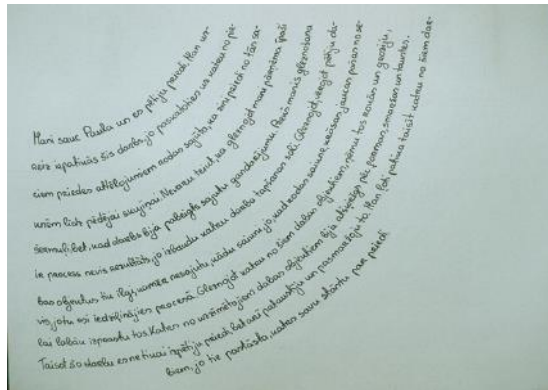 Mani sauc Paula un es pētīju priedi. Man uz-
reiz iepatikās šis darbs, jo paskatoties uz katru no prie-
ciem priedes attēlojumiem rodas sajūta, ka zinu priedi no tās sa-
knēm līdz pēdējai skujiņai. Nevaru teikt, ka gleznojot mani pārņēma īpaši
šermuļi, bet, kad darbs bija pabeigts sajutu gandarījumu. Pēc manis gleznošana
ir process nevis rezultāts, jo izbaudu katru darba tapšanas soli. Gleznojot, vērojot pētīju da-
bas objektus tik ilgi, kamēr nesajutu, kādu sauni, jo, kad rodas saikne, krāsas jaucas pašas no se-
vis, jo tu esi iedziļinājies procesā. Gleznojot katru no šiem dabas objektiem, ņēmu tos rokās un grozīju,
lai labāk izprastu tos. Katrs no uzzīmētajiem dabas objektiem bija atšķirīgs pēc formas, smaržas un tekstūras.
Taisot šo darbu es ne tikai izpētīju priedi, bet arī pataustīju un pasmaržoju to. Man ļoti patika taisīt katru no šiem dar-
biem, jo tie pastāsta, katrs savu stāstu par priedi